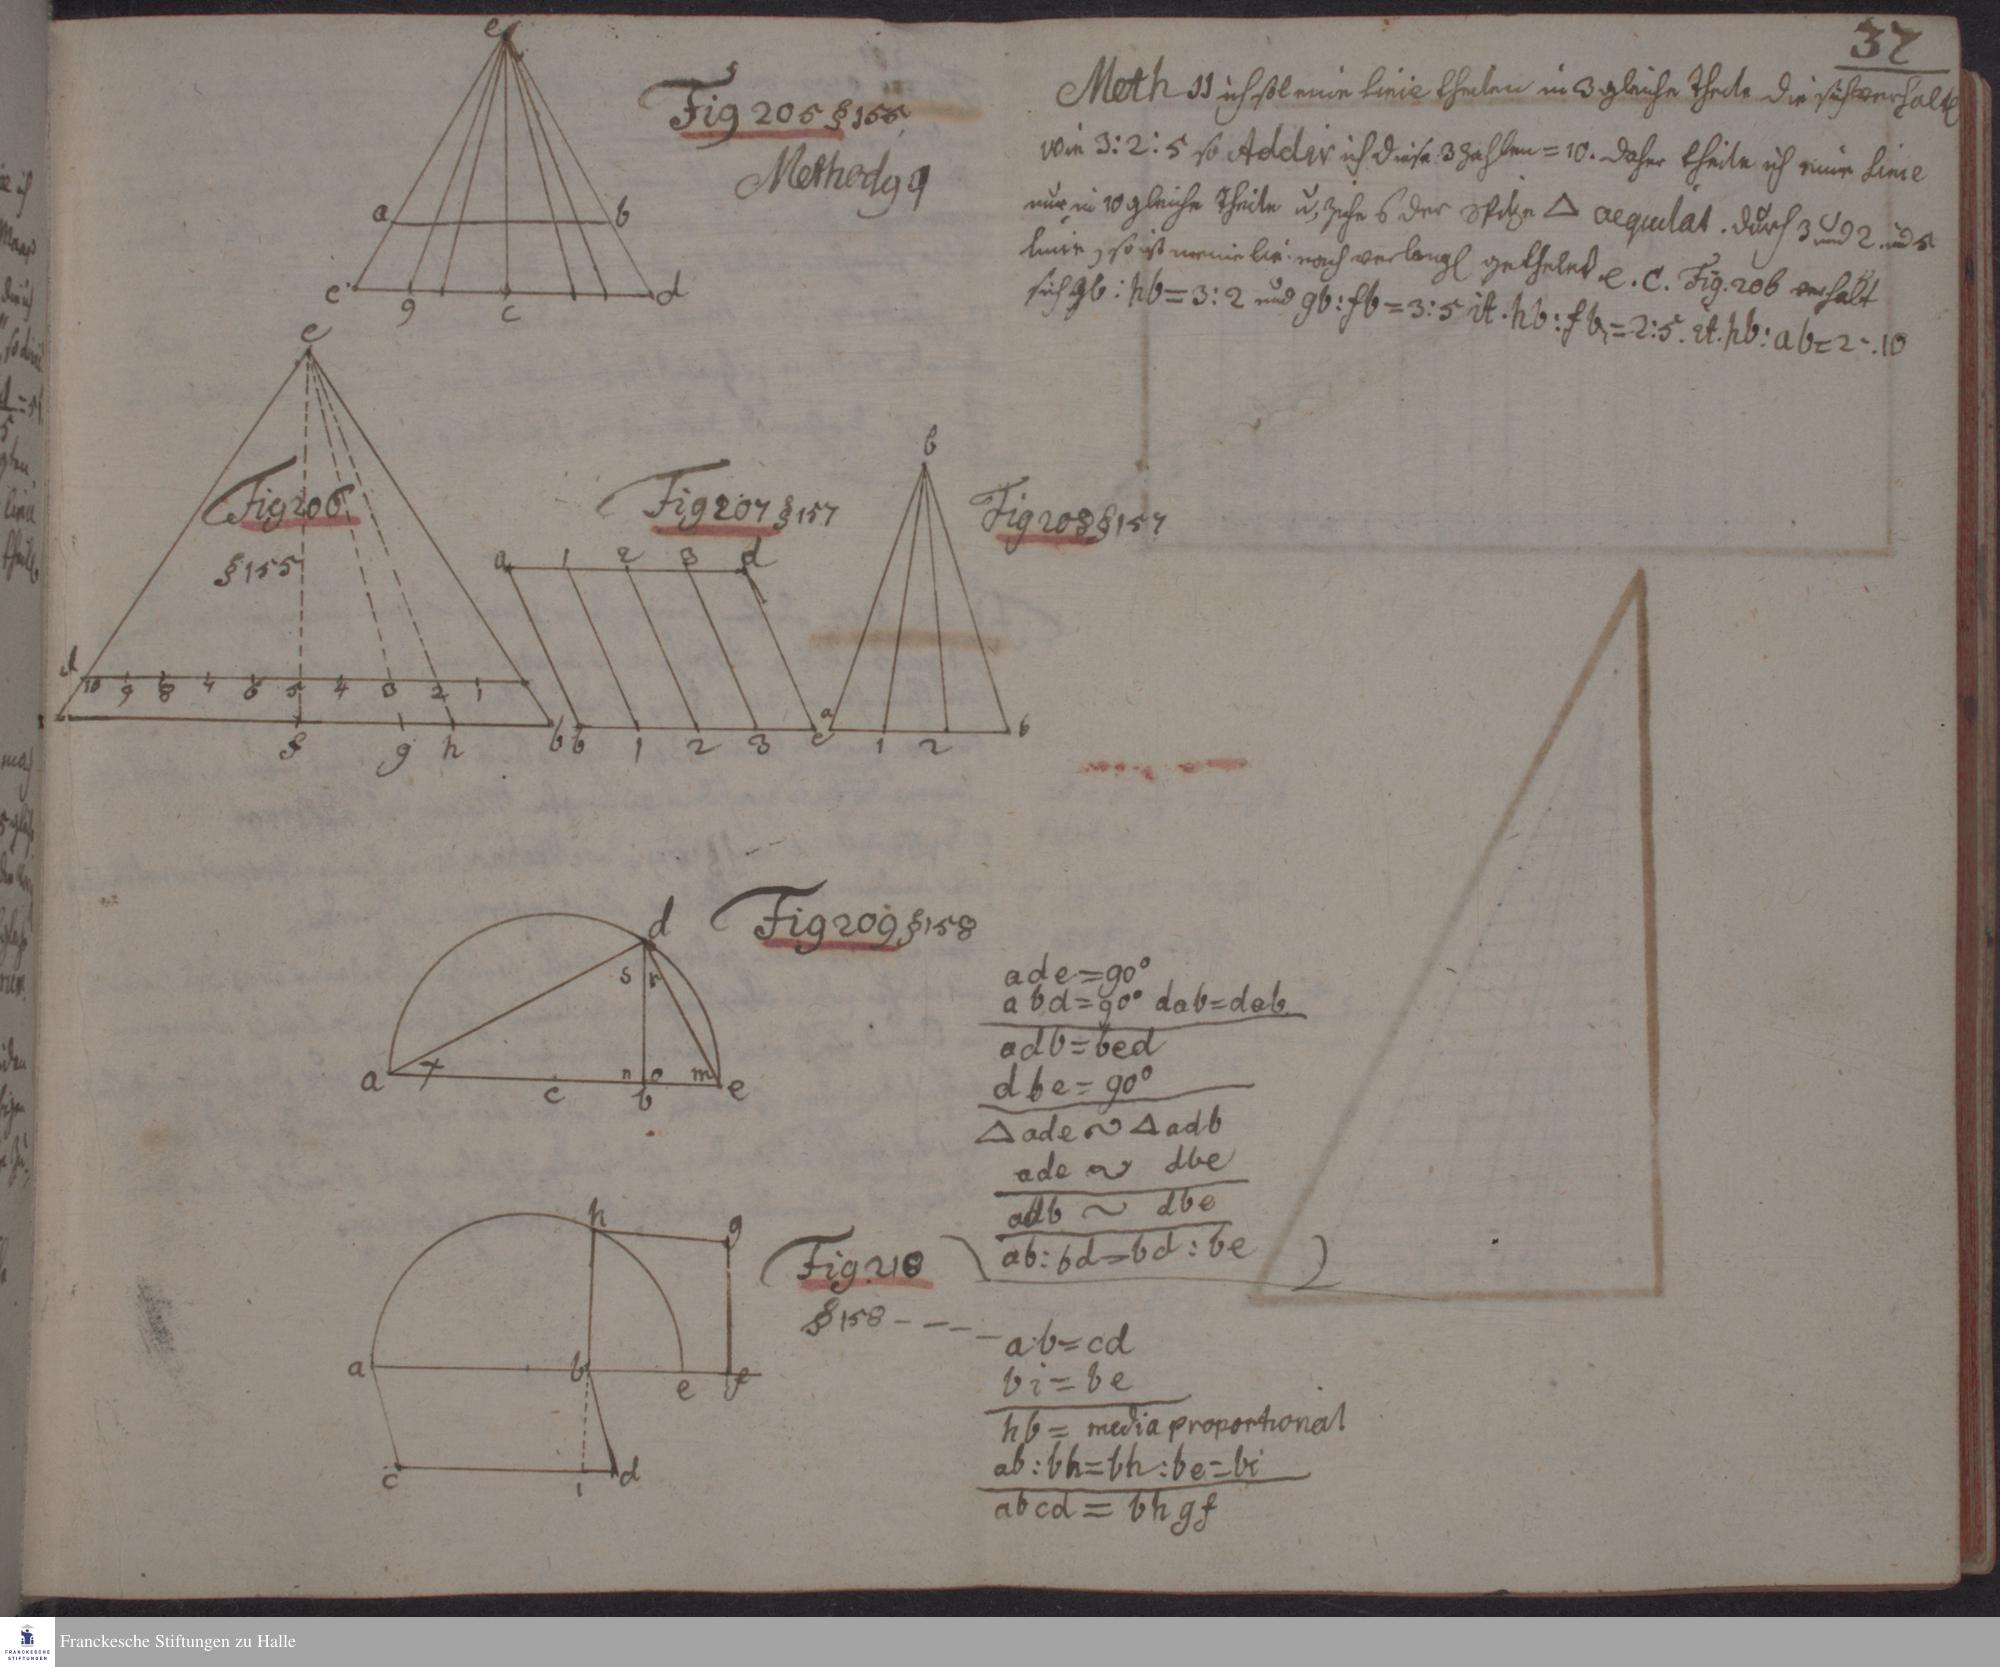 37
Meth 11 ich sol eine Linie theilen in 3 gleiche Theile die sich verhalte
wie 3:2:5 so Addir ich diese 3 Zahlen = 10. daher theile ich eine Linie
nur in 10 gleiche Theile u, ziehe der Spitze Δ aequilat. durch 3 und 2 und 5
linie, so ist meine lin. nach verlang getheilet e. C. Fig. 206 verhalt
sich gb : hb = 3:2 und gb : fb = 3:5 it. hb : fb = 2:5. it. hb : ab = 2 : 10
Fig 205 § 155
Method 9
e
a b
c g c d
Fig 206
§ 155
e
d
10 9 8 7 6 5 4 3 2 1
f g h b
Fig 207 § 157
a 1 2 3 d
b 1 2 3 c
Fig 208 § 157
b
a 1 2 b
Fig 209 § 158
d
s r
a x c n o m e
b
ade = 90°
abd = 90° dab = dab
adb = bed
dbe = 90°
Δ ade ~ Δ adb
ade ~ dbe
adb ~ dbe
ab : bd = bd : be
Fig 210
§ 158 - - - -
h g
a b e f
c i d
ab = cd
bi = be
hb = media proportional
ab : bh = bh : be = bi
abcd = bhgf
Franckesche Stiftungen zu Halle
FRANCKESCHE
STIFTUNGEN